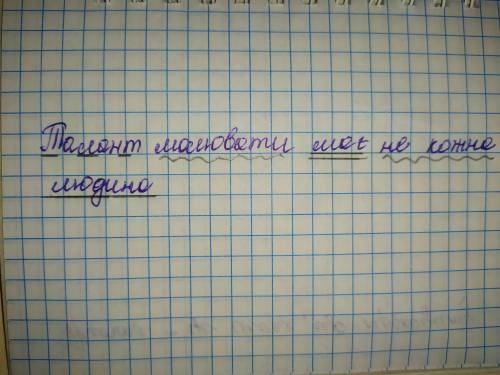 Талант малювати має не кожна
людина